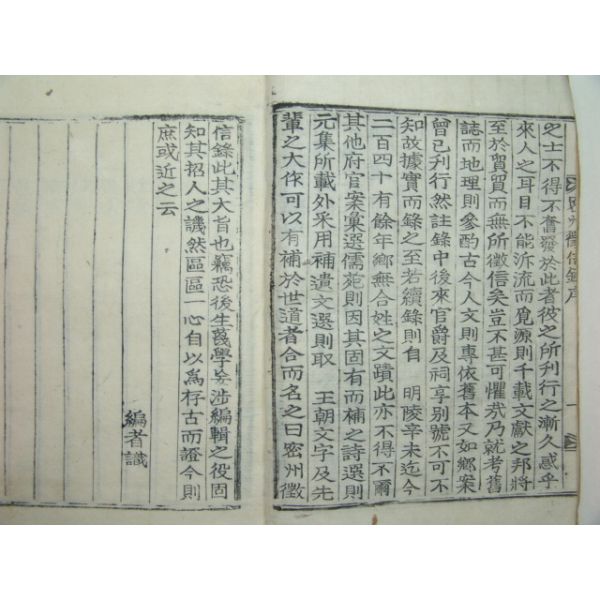 之士不得不奮發於此者彼之所刊行之漸久惑乎
來人之耳目不能泝流而覓源則千載文獻之邦將
至於貿貿而無所徵信矣豈不甚可懼哉乃就考舊
誌而地理則參酌古今人文則專依舊本又如鄉案
曾已刊行然註錄中後來官爵及祠享別號不可不
知故據實而錄之至若續錄則自 明陵辛未迄今
二百四十有餘年鄉無合姓之文蹟此亦不得不爾
其他府官案彙選儒苑則因其固有而補之詩選則
元集所載外采用補遺文選則取 王朝文字及先
輩之大作可以有補於世道者合而名之曰密州徵
信錄此其大旨也竊恐後生蔑學妄涉編輯之役固
知其招人之譏然區區一心自以爲存古而證今則
庶或近之云
編者識
密州徵信錄序
一